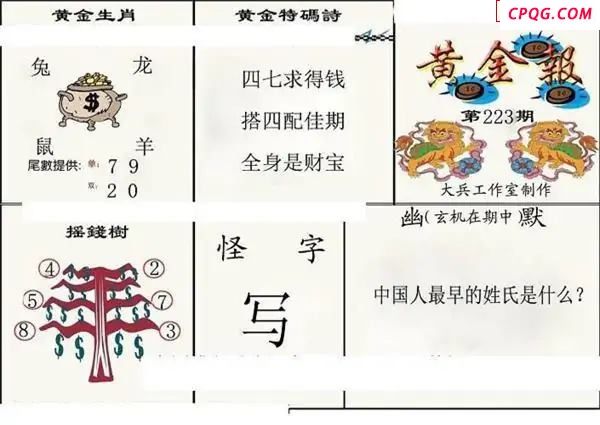 CPQG.COM
黄金生肖
兔 龙
鼠 羊
尾數提供: 单: 7 9
双: 2 0
黄金特碼詩
四七求得钱
搭四配佳期
全身是财宝
黄金報
第223期
大兵工作室制作
摇錢樹
④ ②
⑤ ⑦
⑧ ③
怪字
写
幽(玄机在期中)默
中国人最早的姓氏是什么?